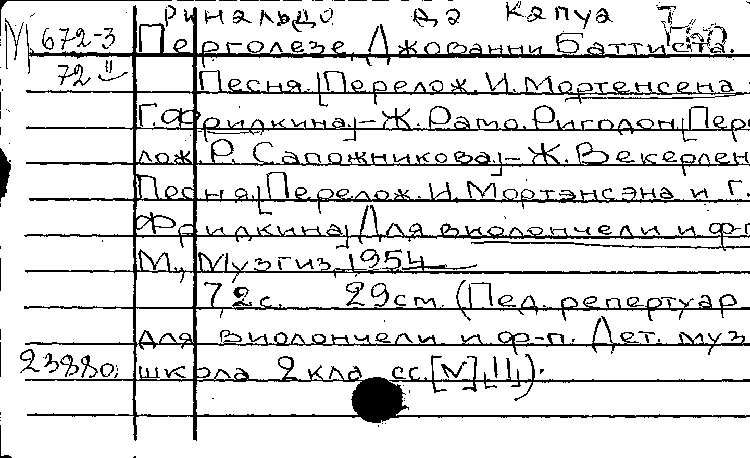 Ринальдо да Капуа
М 672-3 Перголезе, Джованни Баттиста.
72 II Песня. [Перелож. И. Мортенсена
Г. Фридкина] – Ж. Рамо. Ригодон. [Пере
лож. Р. Сапожникова] – Ж. Векерлен
Песня. [Перелож. И. Мортэнсэна и Г.
Фридкина] Для виолончели и ф-п
М., Музгиз, 1954
7,2 с. 29 см. (Пед. репертуар
для виолончели и ф-п. Дет. муз
23880 школа 2 кла сс. [М], II,).